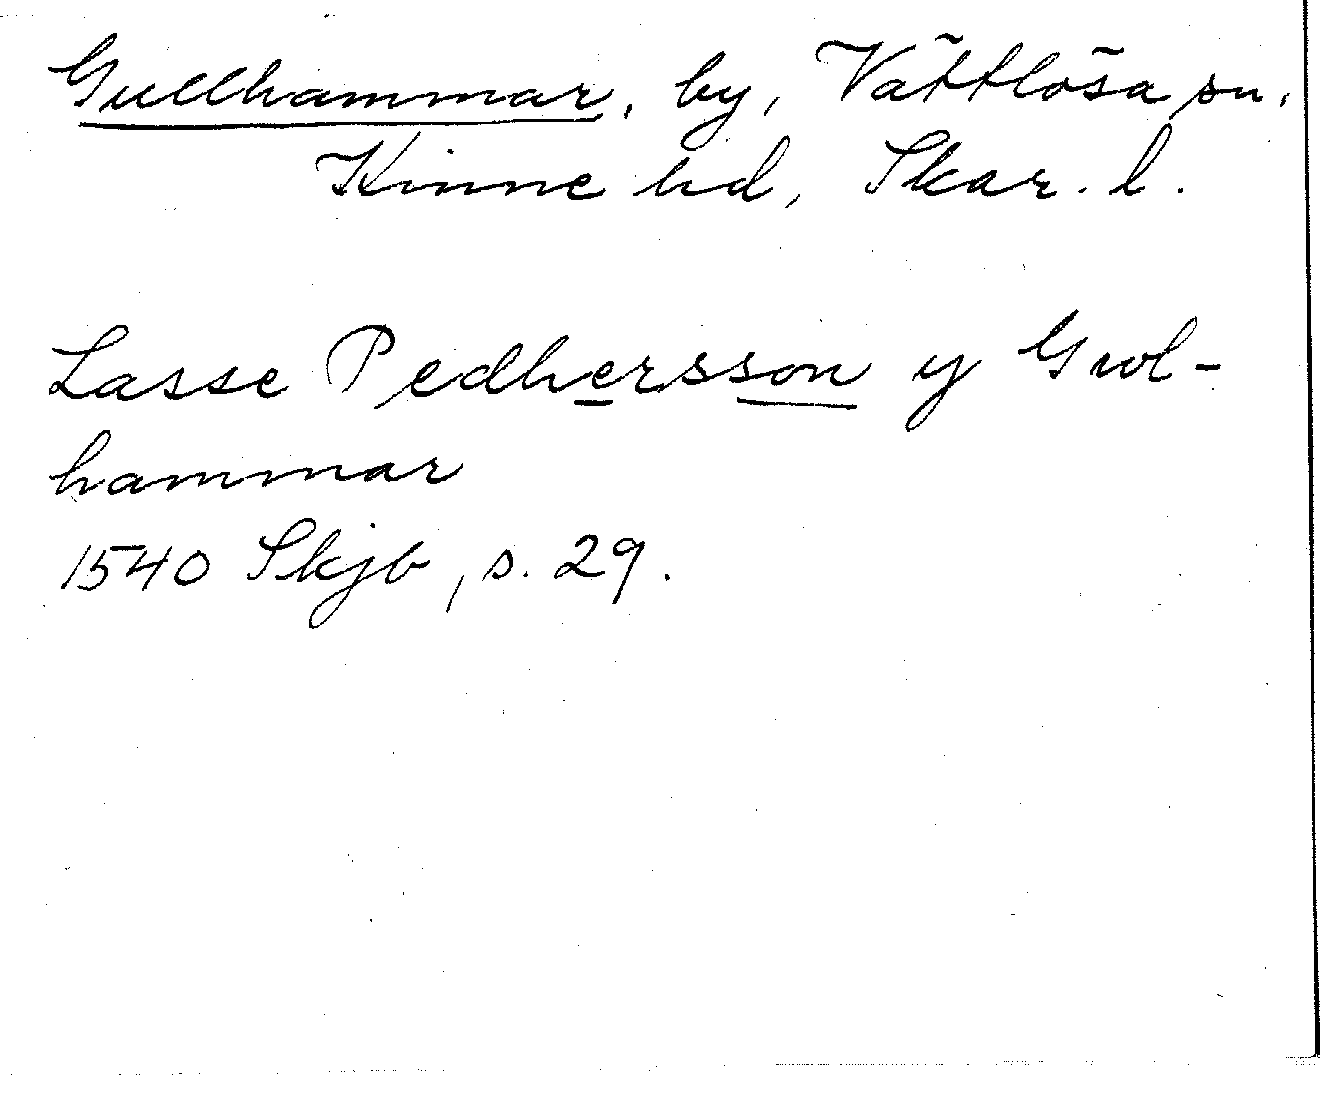 Gullhammar, by, Vättlösa sn,
Kinne hd, Skar. l.
Lasse Pedhersson y Gwl-
hammar
1540 Skjb, s. 29.